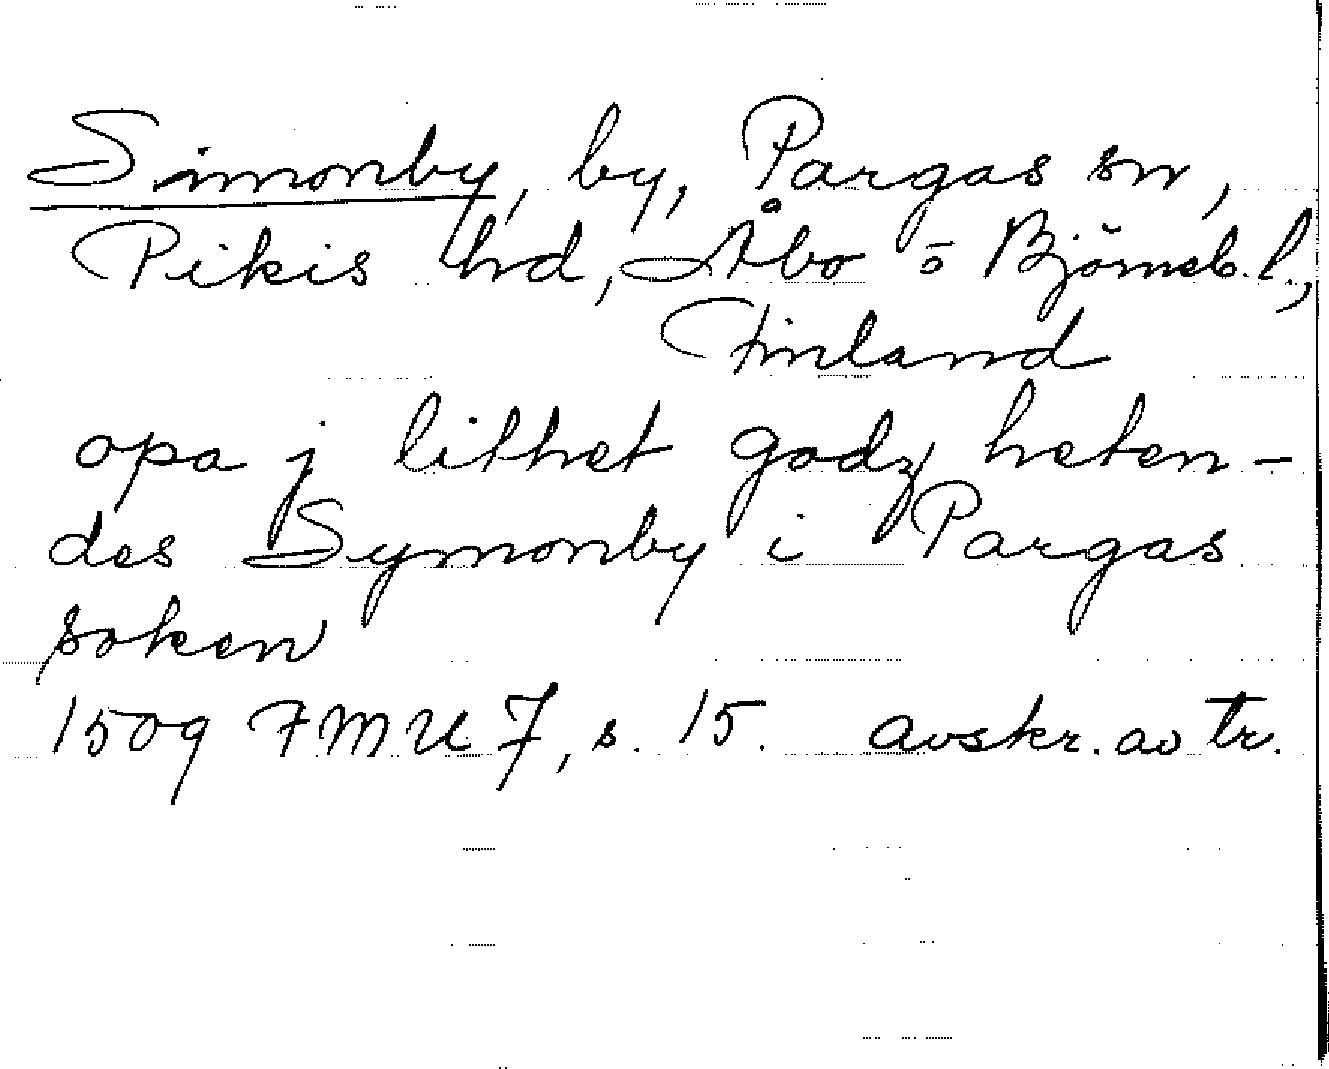 Simonby, by, Pargas sn,
Pikis hd, Åbo o Björneb. l.,
Finland
opa j lithet godz heten-
des Symonby i Pargas
soken
1509 FMU 7, s. 15. avskr. av tr.